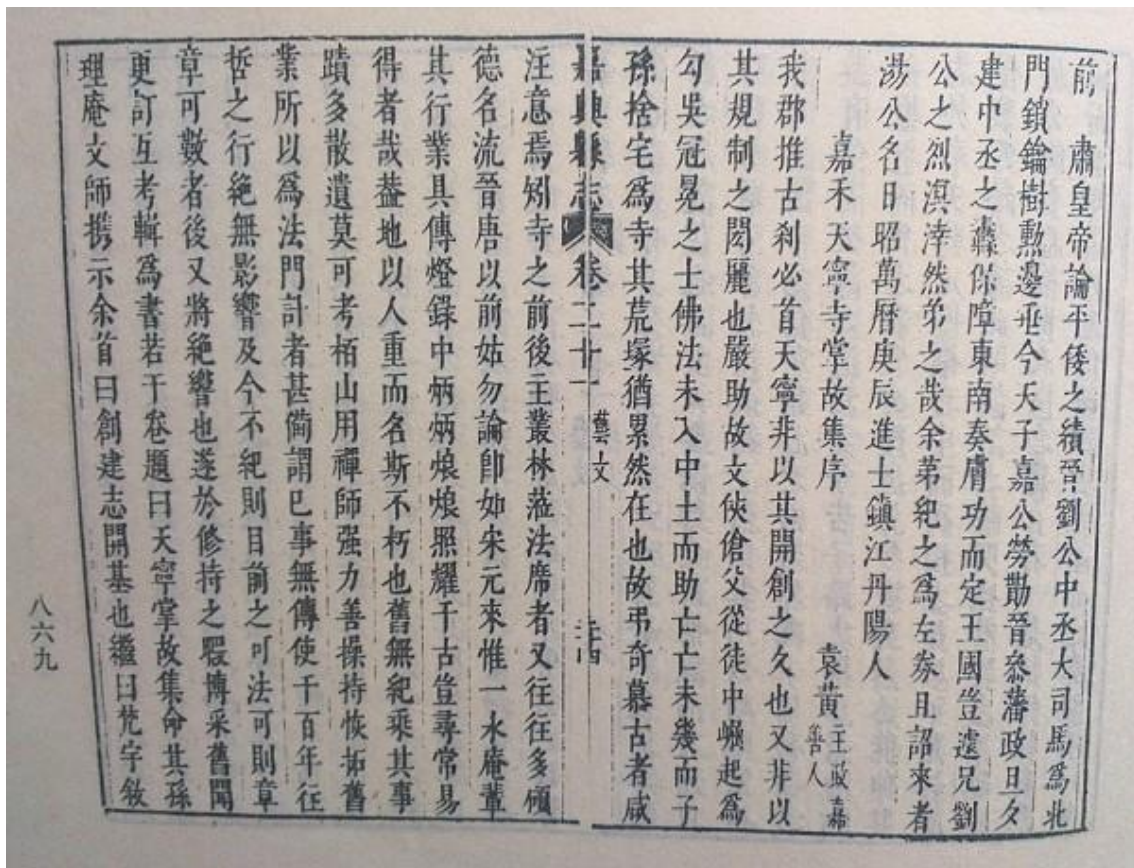 前　肅皇帝論平倭之績晉劉公中丞大司馬爲北
門鎖鑰樹勲邊垂今天子嘉公勞勩晉叅藩政旦夕
建中丞之纛保障東南奏膚功而定王國豈遽兄劉
公之烈溟涬然弟之哉余第紀之爲左劵且詔來者
游公名日昭萬曆庚辰進士鎮江丹陽人
嘉禾天寧寺掌故集序　袁黃主政嘉善人
我郡推古刹必首天寧非以其開創之久也又非以
其規制之閎麗也嚴助故文俠傖父從徒中崛起爲
勾吳冠冕之士佛法未入中土而助亡亡未幾而子
孫捨宅爲寺其荒塚猶累然在也故弔奇慕古者咸
嘉興縣志　卷二十一　藝文　三四
注意焉矧寺之前後主叢林蒞法席者又往往多碩
德名流晉唐以前姑勿論卽如宋元來惟一水庵輩
其行業具傳燈錄中炳炳烺烺照耀千古豈尋常易
得者哉葢地以人重而名斯不朽也舊無紀乘其事
蹟多散遺莫可考栢山用禪師强力善操持恢拓舊
業所以爲法門計者甚備謂已事無傳使千百年往
哲之行絶無影響及今不紀則目前之可法可則章
章可數者後又將絶響也遂於修持之暇博采舊聞
更訂互考輯爲書若干卷題曰天寧掌故集命其孫
理庵文師携示余首曰創建志開基也繼曰梵宇敘
八六九